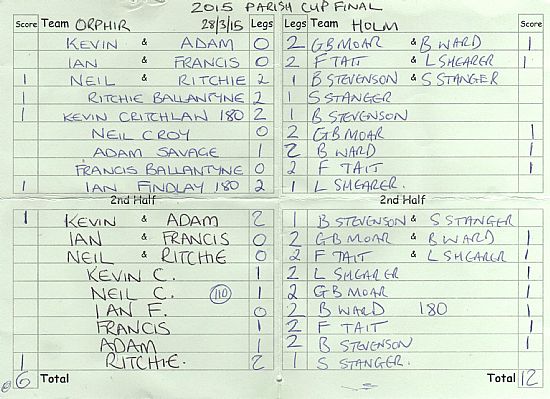 2015 PARISH CUP FINAL
Score Team ORPHIR 28/3/15 Legs Legs Team HOLM Score
KEVIN & ADAM 0 2 GB MOAR & B WARD 1
IAN & FRANCIS 0 2 F TAIT & L SHEARER 1
1 NEIL & RITCHIE 2 1 B STEVENSON & S STANGER
1 RITCHIE BALLANTYNE 2 1 S STANGER
1 KEVIN CRITCHLAN 180 2 1 B STEVENSON
NEIL CROY 0 2 GB MOAR 1
ADAM SAVAGE 1 2 B WARD 1
FRANCIS BALLANTYNE 0 2 F TAIT 1
1 IAN FINDLAY 180 2 1 L SHEARER.
2nd Half 2nd Half
1 KEVIN & ADAM 2 1 B STEVENSON & S STANGER
IAN & FRANCIS 0 2 GB MOAR & B WARD 1
NEIL & RITCHIE 0 2 F TAIT & L SHEARER 1
KEVIN C. 1 2 L SHEARER 1
NEIL C. 110 1 2 GB MOAR 1
IAN F. 0 2 B WARD 180 1
FRANCIS 1 2 F TAIT 1
ADAM 1 2 B STEVENSON 1
1 RITCHIE. 2 1 S STANGER.
6 Total Total 12